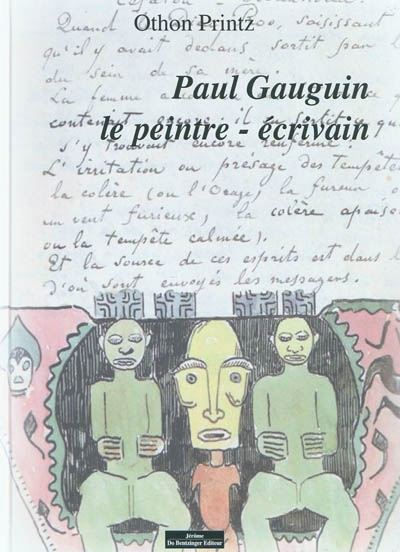 Quand
saisissant
Othon Printz
qu'il y avait dedans sortit par
du sein de sa mère
La femme
Paul Gauguin
contenait encore
le peintre - écrivain
s'y trouvant encore renfermé.
L'irritation ou presage des Tempêtes
la colère (ou l'Orage), la fureur ou
un vent furieuse, la colère apaisée
ou la tempête calmée).
Et la source de ces esprits est dans l
D'où sont envoyés les messagers.
Jérôme
Do Bentzinger Editeur